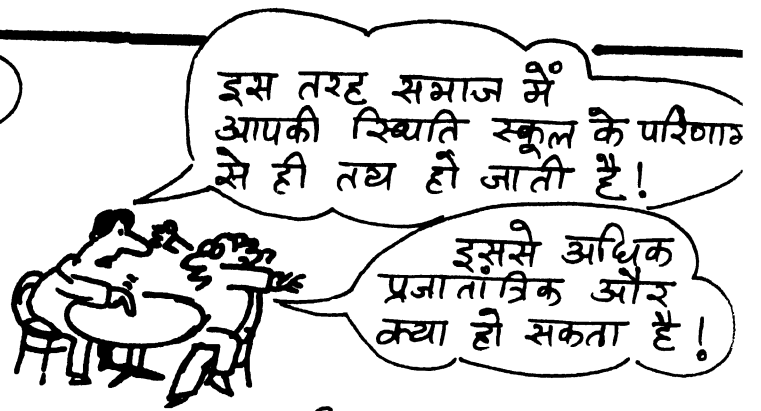 इस तरह समाज में
आपकी स्थिति स्कूल के परिणाम
से ही तय हो जाती है!
इससे अधिक
प्रजातांत्रिक और
क्या हो सकता है!